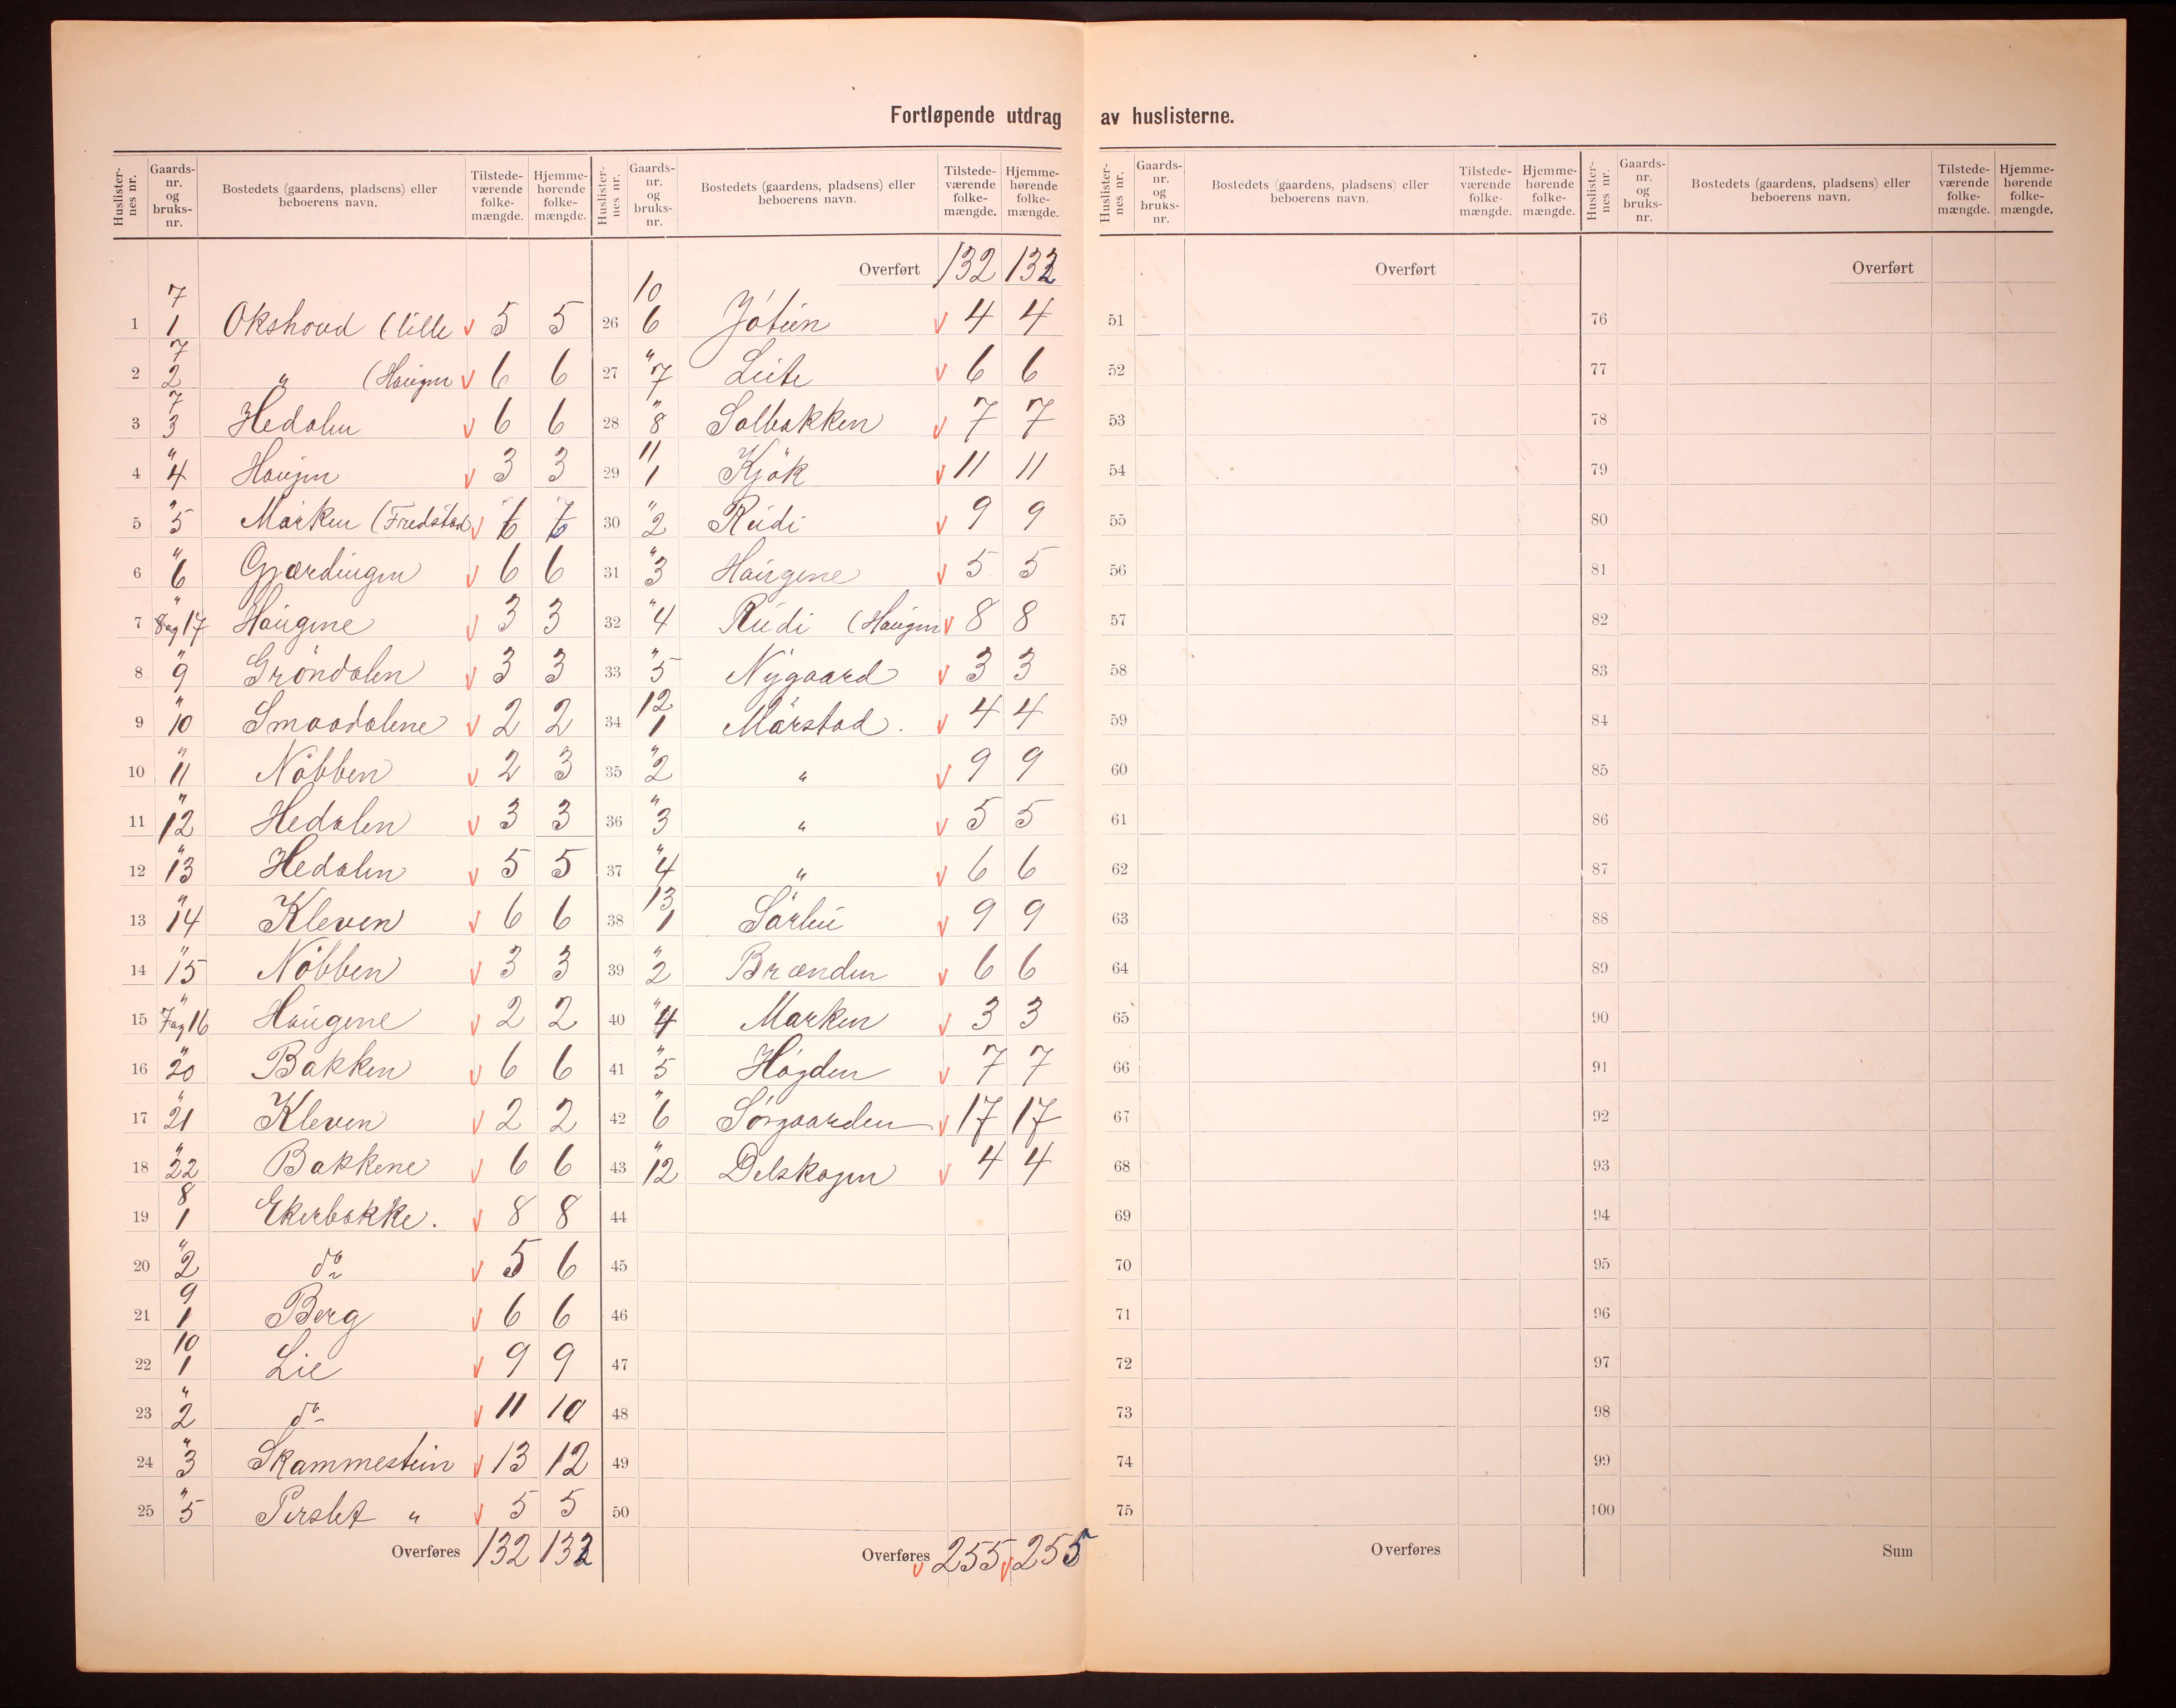 Fortløpende utdrag av huslisterne.
Huslister-nes nr. Gaards-nr. og bruks-nr. Bostedets (gaardens, pladsens) eller beboerens navn. Tilstede-værende folke-mængde. Hjemme-hørende folke-mængde.
1 7 1 Okshovd (lille v 5 5
2 7 2 " (Haugen v 6 6
3 7 3 Hedalen v 6 6
4 " 4 Haugen v 3 3
5 " 5 Marken (Fredstad v
6 " 6 Gjærdingen v 6 6
7 " 8 og 17 Haugene v 3 3
8 " 9 Gröndalen v 3 3
9 " 10 Smaadalene v 2 2
10 " 11 Nöbben v 2 3
11 " 12 Hedalen v 3 3
12 " 13 Hedalen v 5 5
13 " 14 Kleven v 6 6
14 " 15 Nöbben v 3 3
15 " 7 og 16 Haugene v 2 2
16 " 20 Bakken v 6 6
17 " 21 Kleven v 2 2
18 " 22 Bakkene v 6 6
19 8 1 Ekerbakke. v 8 8
20 " 2 do v 5 6
21 9 1 Berg v 6 6
22 10 1 Lie v 9 9
23 " 2 do v 11 10
24 " 3 Skammestein v 13 12
25 " 5 Perslet " v 5 5
Overføres 132 132
Huslister-nes nr. Gaards-nr. og bruks-nr. Bostedets (gaardens, pladsens) eller beboerens navn. Tilstede-værende folke-mængde. Hjemme-hørende folke-mængde.
Overført 132 132
26 10 6 Jotun v 4 4
27 " 7 Leite v 6 6
28 " 8 Solbakken v 7 7
29 11 1 Kjök v 11 11
30 " 2 Rudi v 9 9
31 " 3 Haugene v 5 5
32 " 4 Rudi (Haugen v 8 8
33 " 5 Nygaard v 3 3
34 12 1 Mörstad. v 4 4
35 " 2 " v 9 9
36 " 3 " v 5 5
37 " 4 " v 6 6
38 13 1 Sörlie v 9 9
39 " 2 Brænden v 6 6
40 " 4 Marken v 3 3
41 " 5 Högden v 7 7
42 " 6 Sörgaarden v 17 17
43 " 12 Delskogen v 4 4
44
45
46
47
48
49
50
Overføres v 255 v 255
Huslister-nes nr. Gaards-nr. og bruks-nr. Bostedets (gaardens, pladsens) eller beboerens navn. Tilstede-værende folke-mængde. Hjemme-hørende folke-mængde.
Overført
51
52
53
54
55
56
57
58
59
60
61
62
63
64
65
66
67
68
69
70
71
72
73
74
75
Overføres
Huslister-nes nr. Gaards-nr. og bruks-nr. Bostedets (gaardens, pladsens) eller beboerens navn. Tilstede-værende folke-mængde. Hjemme-hørende folke-mængde.
Overført
76
77
78
79
80
81
82
83
84
85
86
87
88
89
90
91
92
93
94
95
96
97
98
99
100
Sum